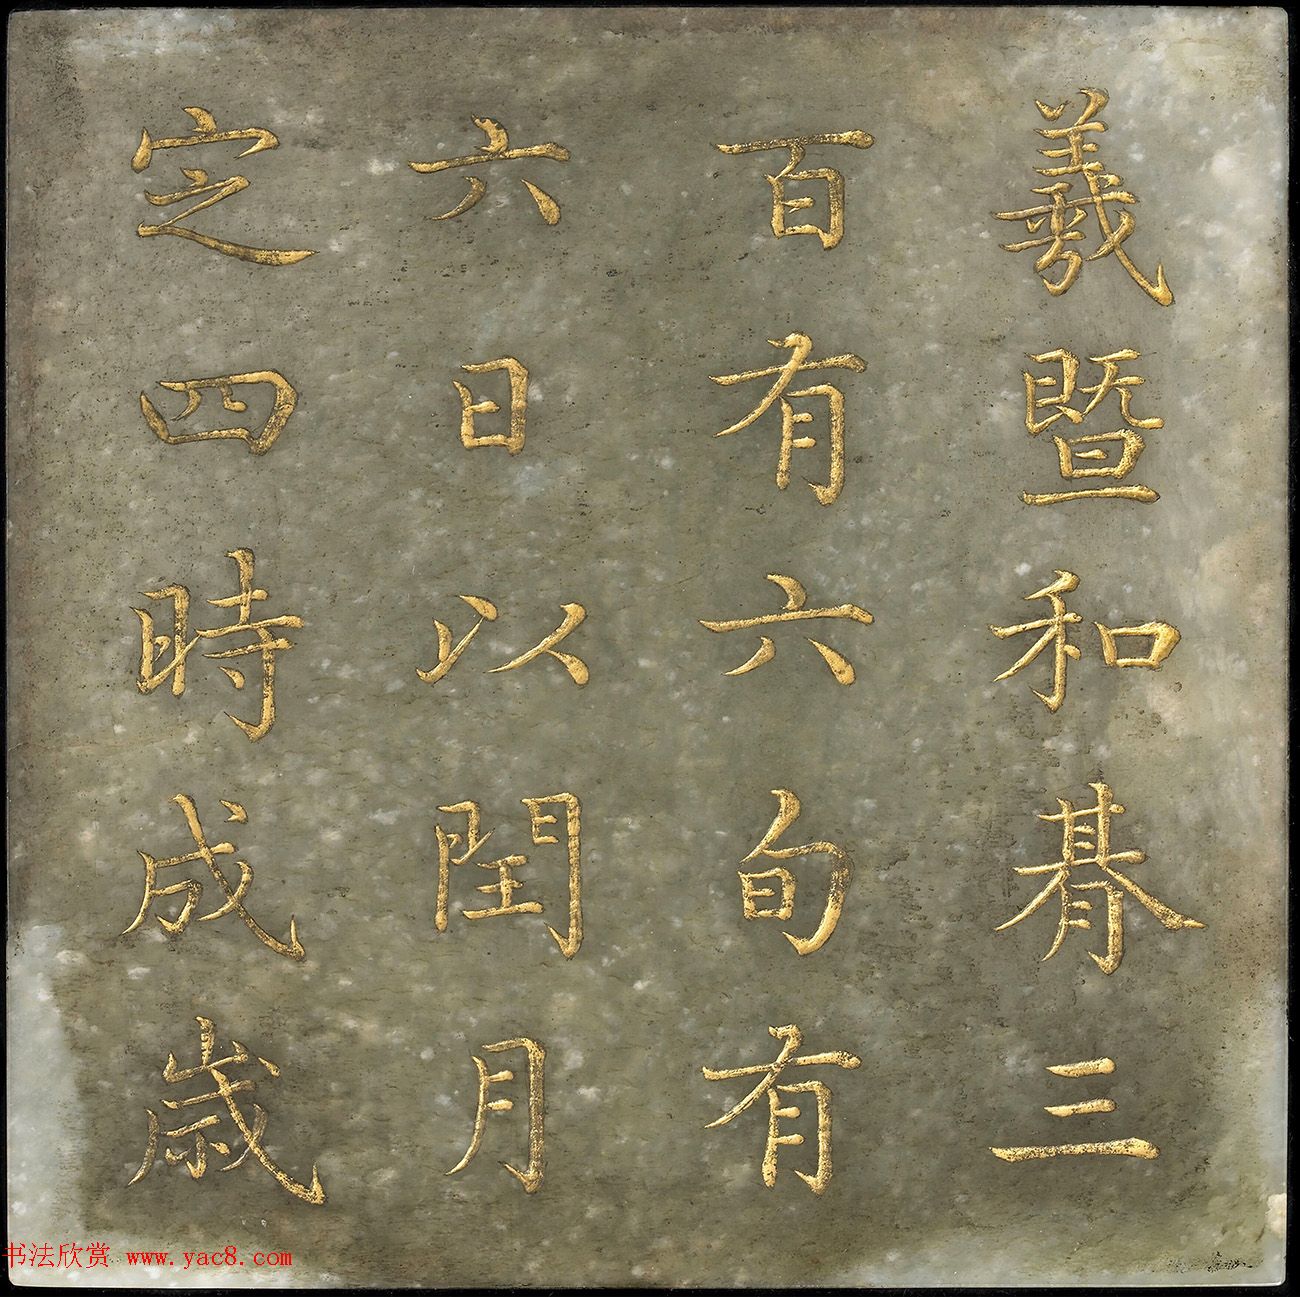 羲暨和朞三
百有六旬有
六日以閏月
定四時成歲
书法欣赏 www.yac8.com